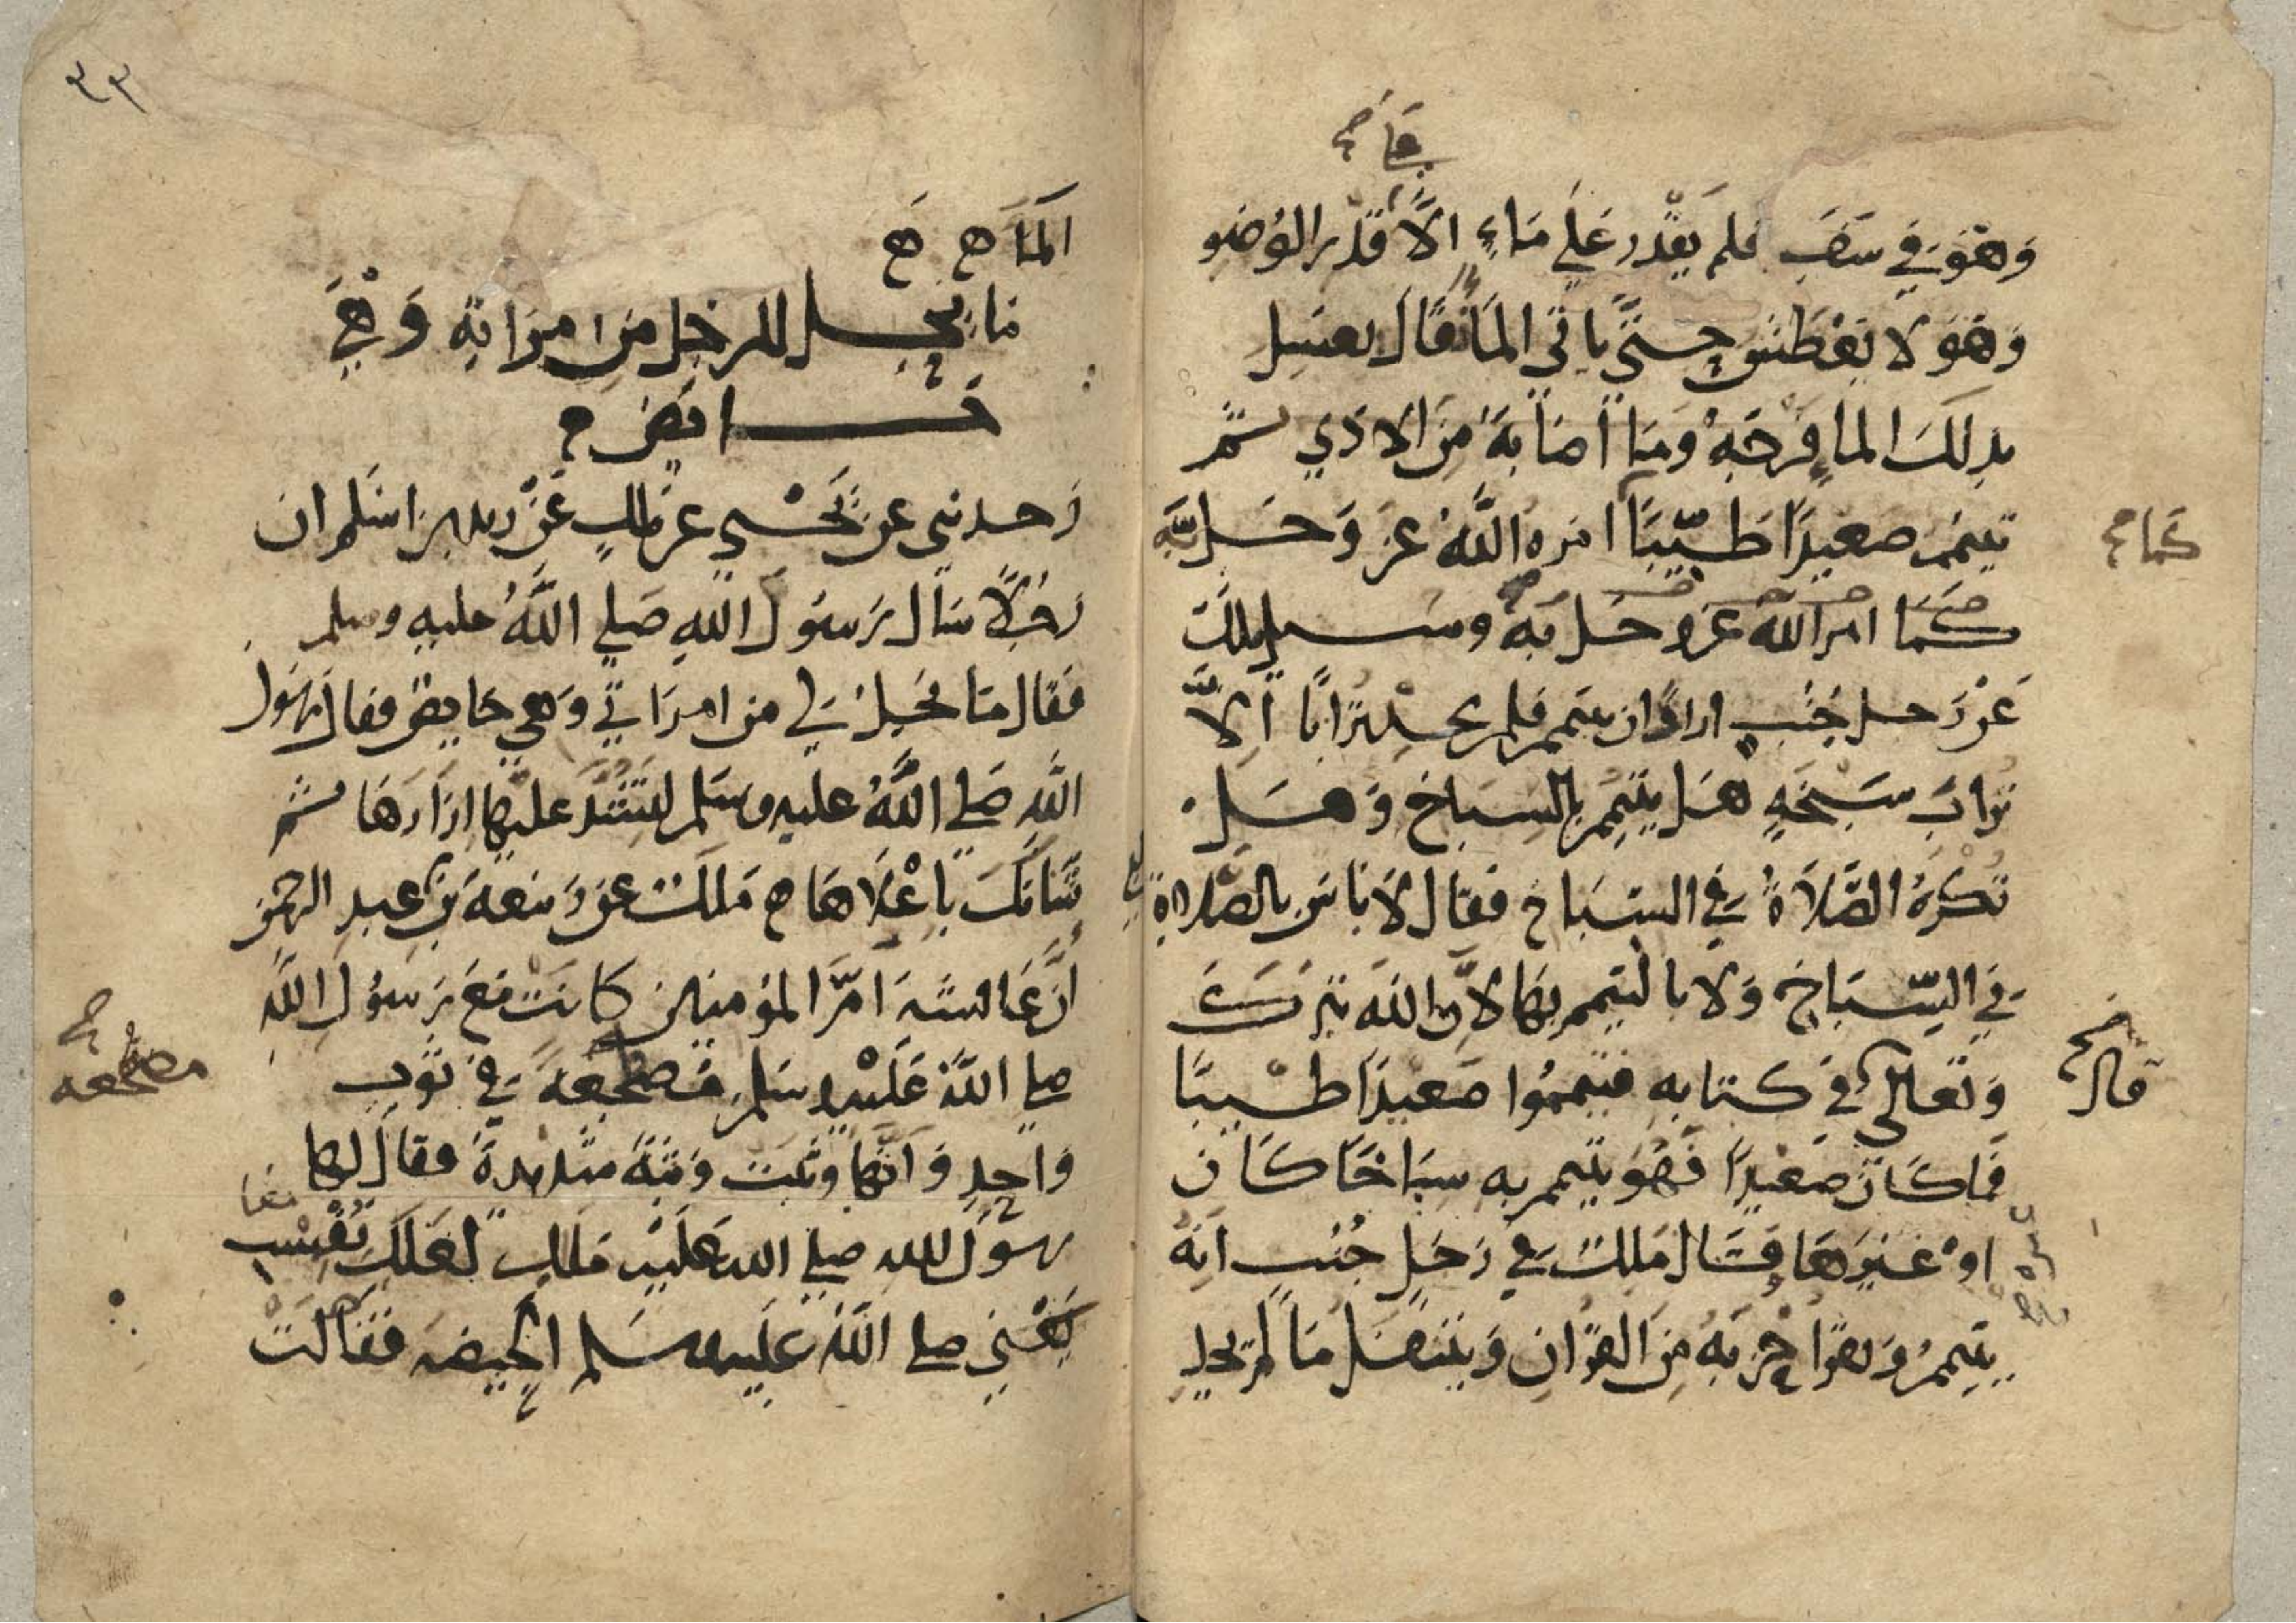 قا صح
وَهُوَ فِي سَفَرٍ فلم يَقْدِر عَلَى مَاءٍ الاَّ قَدْر الوُضو
وَهُوَ لا يَعْطَش حتَّى ياتي المَا فقَال يغسِل
بذلكَ الما فَرجَهُ ومَا اصَابهُ مِنَ الاذي ثم
تيمم صَعيدًا طَيّبًا امره اللَّهُ عز وَجَل بِهِ
كما صح
كَمَا امر الله عز وجل بِهِ وسيل ملك
عَنْ رَجل جُنُبٍ اراد ان يتيمم فلم يجد تُرَابًا اِلاَّ
تُرابَ سَبخَةٍ هَل يتيمم بالسِبَاخ وَهَل
تُكْرَهُ الصَّلاَةُ فِي السِّبَاخ فقال لا باس بالصلاة
فِي السِّبَاخ وَلا بالتيمم بها لانّ الله تبركَ
قال صح
وَتعالى في كتابه فتيمموا صَعيدًا طيبًا
فما كَانَ صَعِيدًا فَهُوَ يتيمم به سِبَاخًا كَان
اوْ غيرهَا وقَال ملك فِي رَجُلٍ جُنُبٍ انّهُ
يتيممُ وَيقرا حِزبهُ مِنَ القران وَيتنفل مَا لم يجد
٣٣
المَا صح صح
مَا يحِل للرجل مِن امرَاتِهِ وَهْيَ
حَايض
وَحدثني عن يَحْيي عن مالكٍ عَنْ زيد بن اسْلم ان
رَجُلًا سَال رَسُول اللهِ صَلي اللَّهُ عليهِ وسلم
فَقَال مَا يَحِل لي من امرَاتي وَهي حَايض فقال رَسُول
اللهِ صَلي اللَّهُ عليه وسَلم لِتَشُدَّ علَيها ازَارهَا ثم
شَانكَ باعْلاهَا مَلك عن رَبيعة بنِ عبدِ الرحمن
اَنَّ عَائشهَ امَّ المومنين كانت مَعَ رَسُول اللَّهِ
صلي اللَّهُ عَلَيْهِ وسَلم مُضطجعةً فِي ثوبٍ
مضطجعه صح
وَاحِدٍ وَانها وثبت وَثبةً شديدةً فقال لها
رسول الله صلي الله عَلَيْهِ مَا لكِ لعَلكِ نُفِسْتِ
يَعْني صلي اللَّهُ عليه وسَلم الحيضهَ فَقَالَتْ